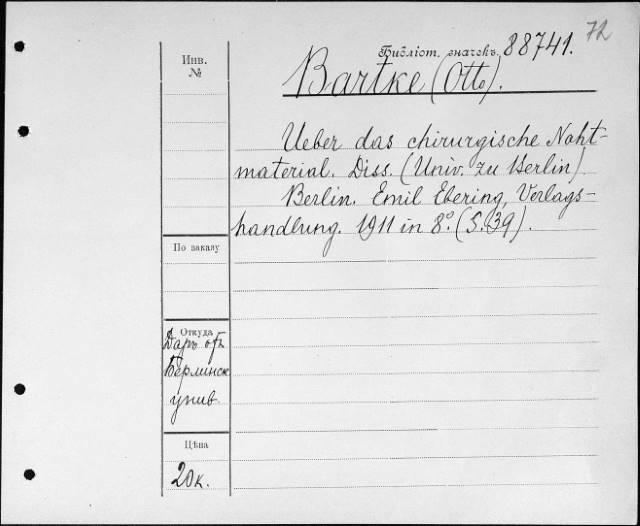 72
Библіот. значекъ. 88741.
Bartke (Otto).
Ueber das chirurgische Naht-
material. Diss. (Univ. zu Berlin)
Berlin. Emil Ebering, Verlags-
handlung. 1911 in 8º. (S. 39).
Инв.
№
По заказу
Откуда
Даръ отъ
Берлинск
унив.
Цѣна
20к.